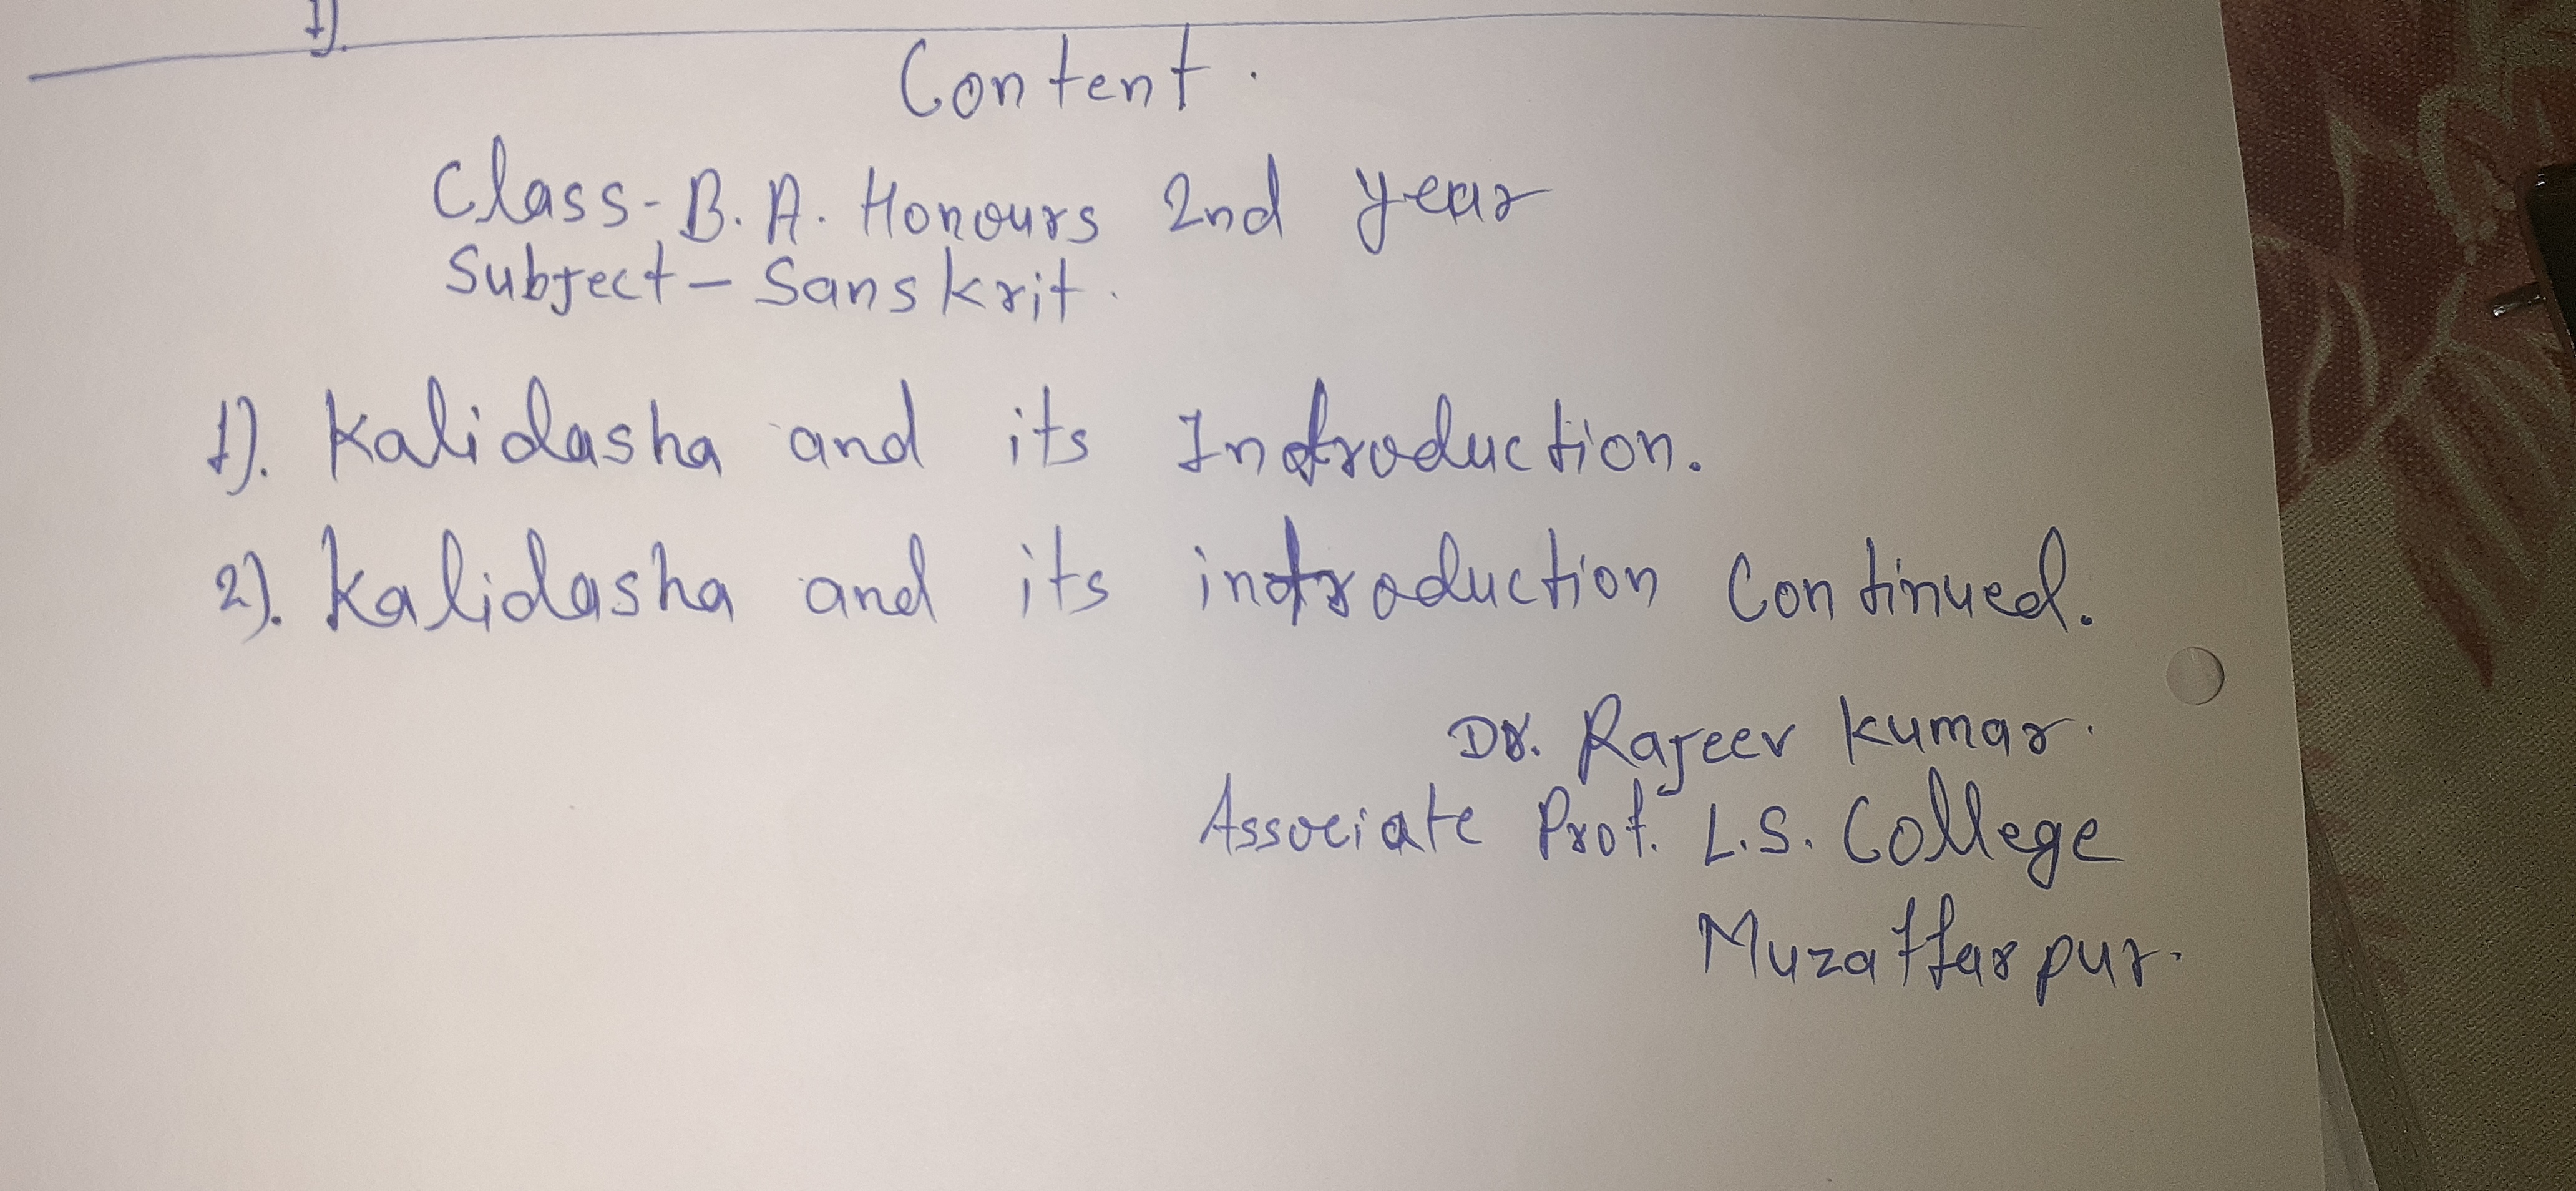 1).
Content.
Class- B. A. Honours 2nd year
Subject - Sanskrit.
1). Kalidasha and its Introduction.
2). Kalidasha and its introduction Continued.
Dr. Rajeev Kumar.
Associate Prof. L.S. College
Muzaffarpur.